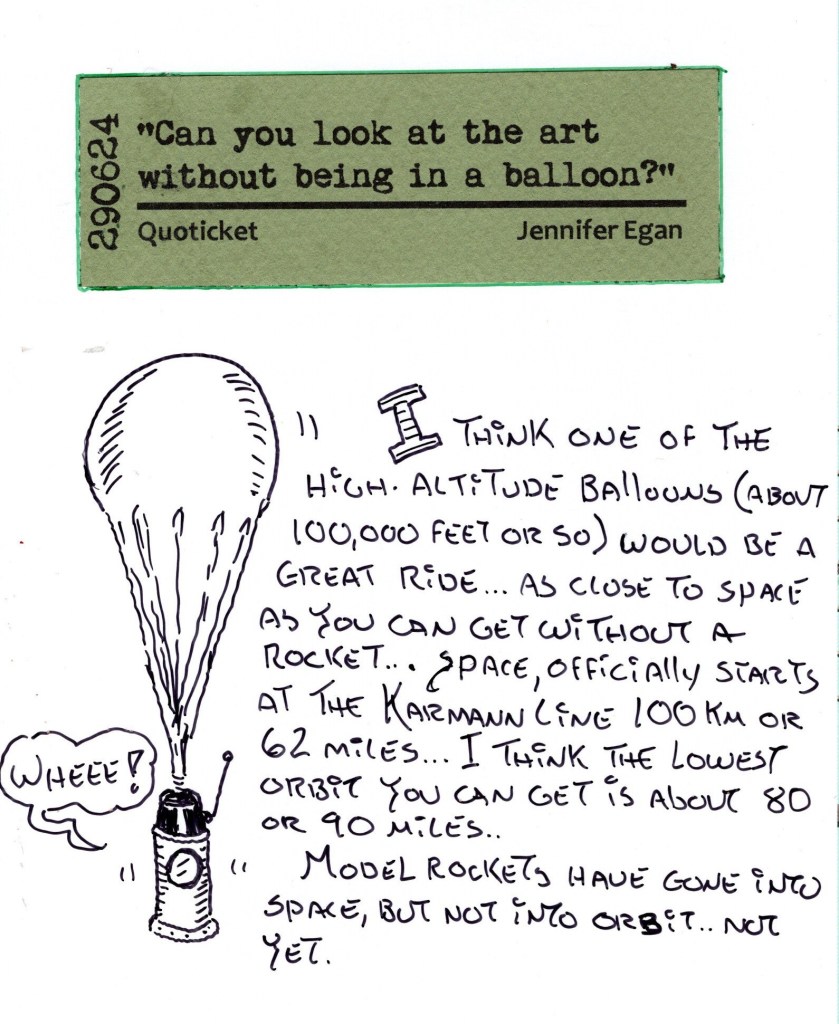 290624
"Can you look at the art
without being in a balloon?"
Quoticket Jennifer Egan
I THINK ONE OF THE
HIGH-ALTITUDE BALLOONS (ABOUT
100,000 FEET OR SO) WOULD BE A
GREAT RIDE... AS CLOSE TO SPACE
AS YOU CAN GET WITHOUT A
ROCKET... SPACE, OFFICIALLY STARTS
AT THE KARMANN LINE 100 KM OR
62 MILES... I THINK THE LOWEST
ORBIT YOU CAN GET IS ABOUT 80
OR 90 MILES..
MODEL ROCKETS HAVE GONE INTO
SPACE, BUT NOT INTO ORBIT.. NOT
YET.
WHEEE!